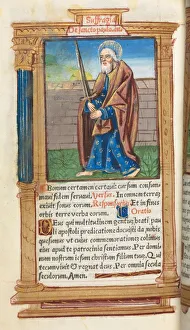 Suffragia
De sancto paulo.an̄
Bonum certamen certaui: cursum consum
maui: fidem seruaui. Versic. In omnem terrā
exiuit sonus eorum. Responsoriū. Et in finis
orbis terre verba eorum. Oratio
Deus qui multitudinem gentiū: beati pau
li apostoli predicatione docuisti: da nobis
quesumus vt cuius commemorationē colimus:
eius apud te patrocinia sentiamus. Per domi
num nostrum iesum christum filium tuum. Qui
tecum viuit et regnat deus. Per omnia secula
seculorum. Amen.